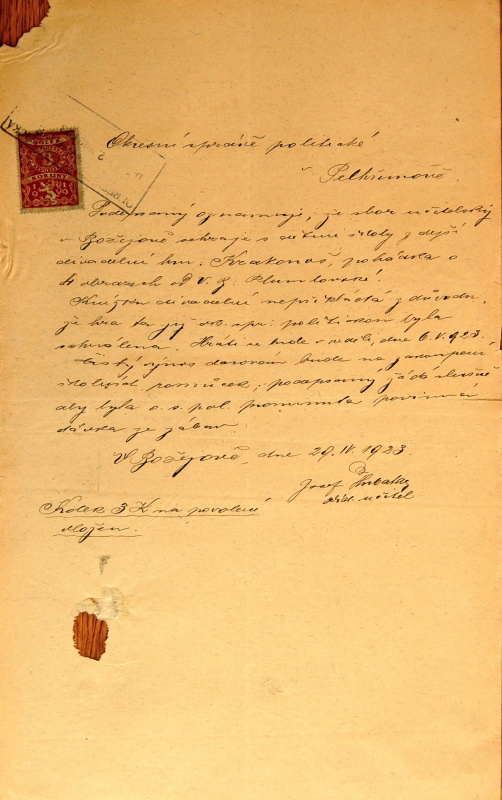 Okresní správě politické
v Pelhřimově
Podepsaný oznamuje, že sbor učitelský
v Božejově sehraje s dětmi školy zdejší
divadelní hru: Krakonoš, pohádka o
4 obrazech od V. J. Plumlovské.
Knížku divadelní nepřikládá z důvodu,
že hra ta již ok. spr. politickou byla
schválena. Hráti se bude v neděli, dne 6.V.1923.
čistý výnos darován bude na
školních pomůcek; podepsaný žádá slušně
aby byla o. s. pol. prominuta povinná
dávka ze zábav.
V Božejově, dne 29.IV.1923.
Josef
říd. učitel
Kolek 3 K na povolení
vložen.
3
KORUNY
1919